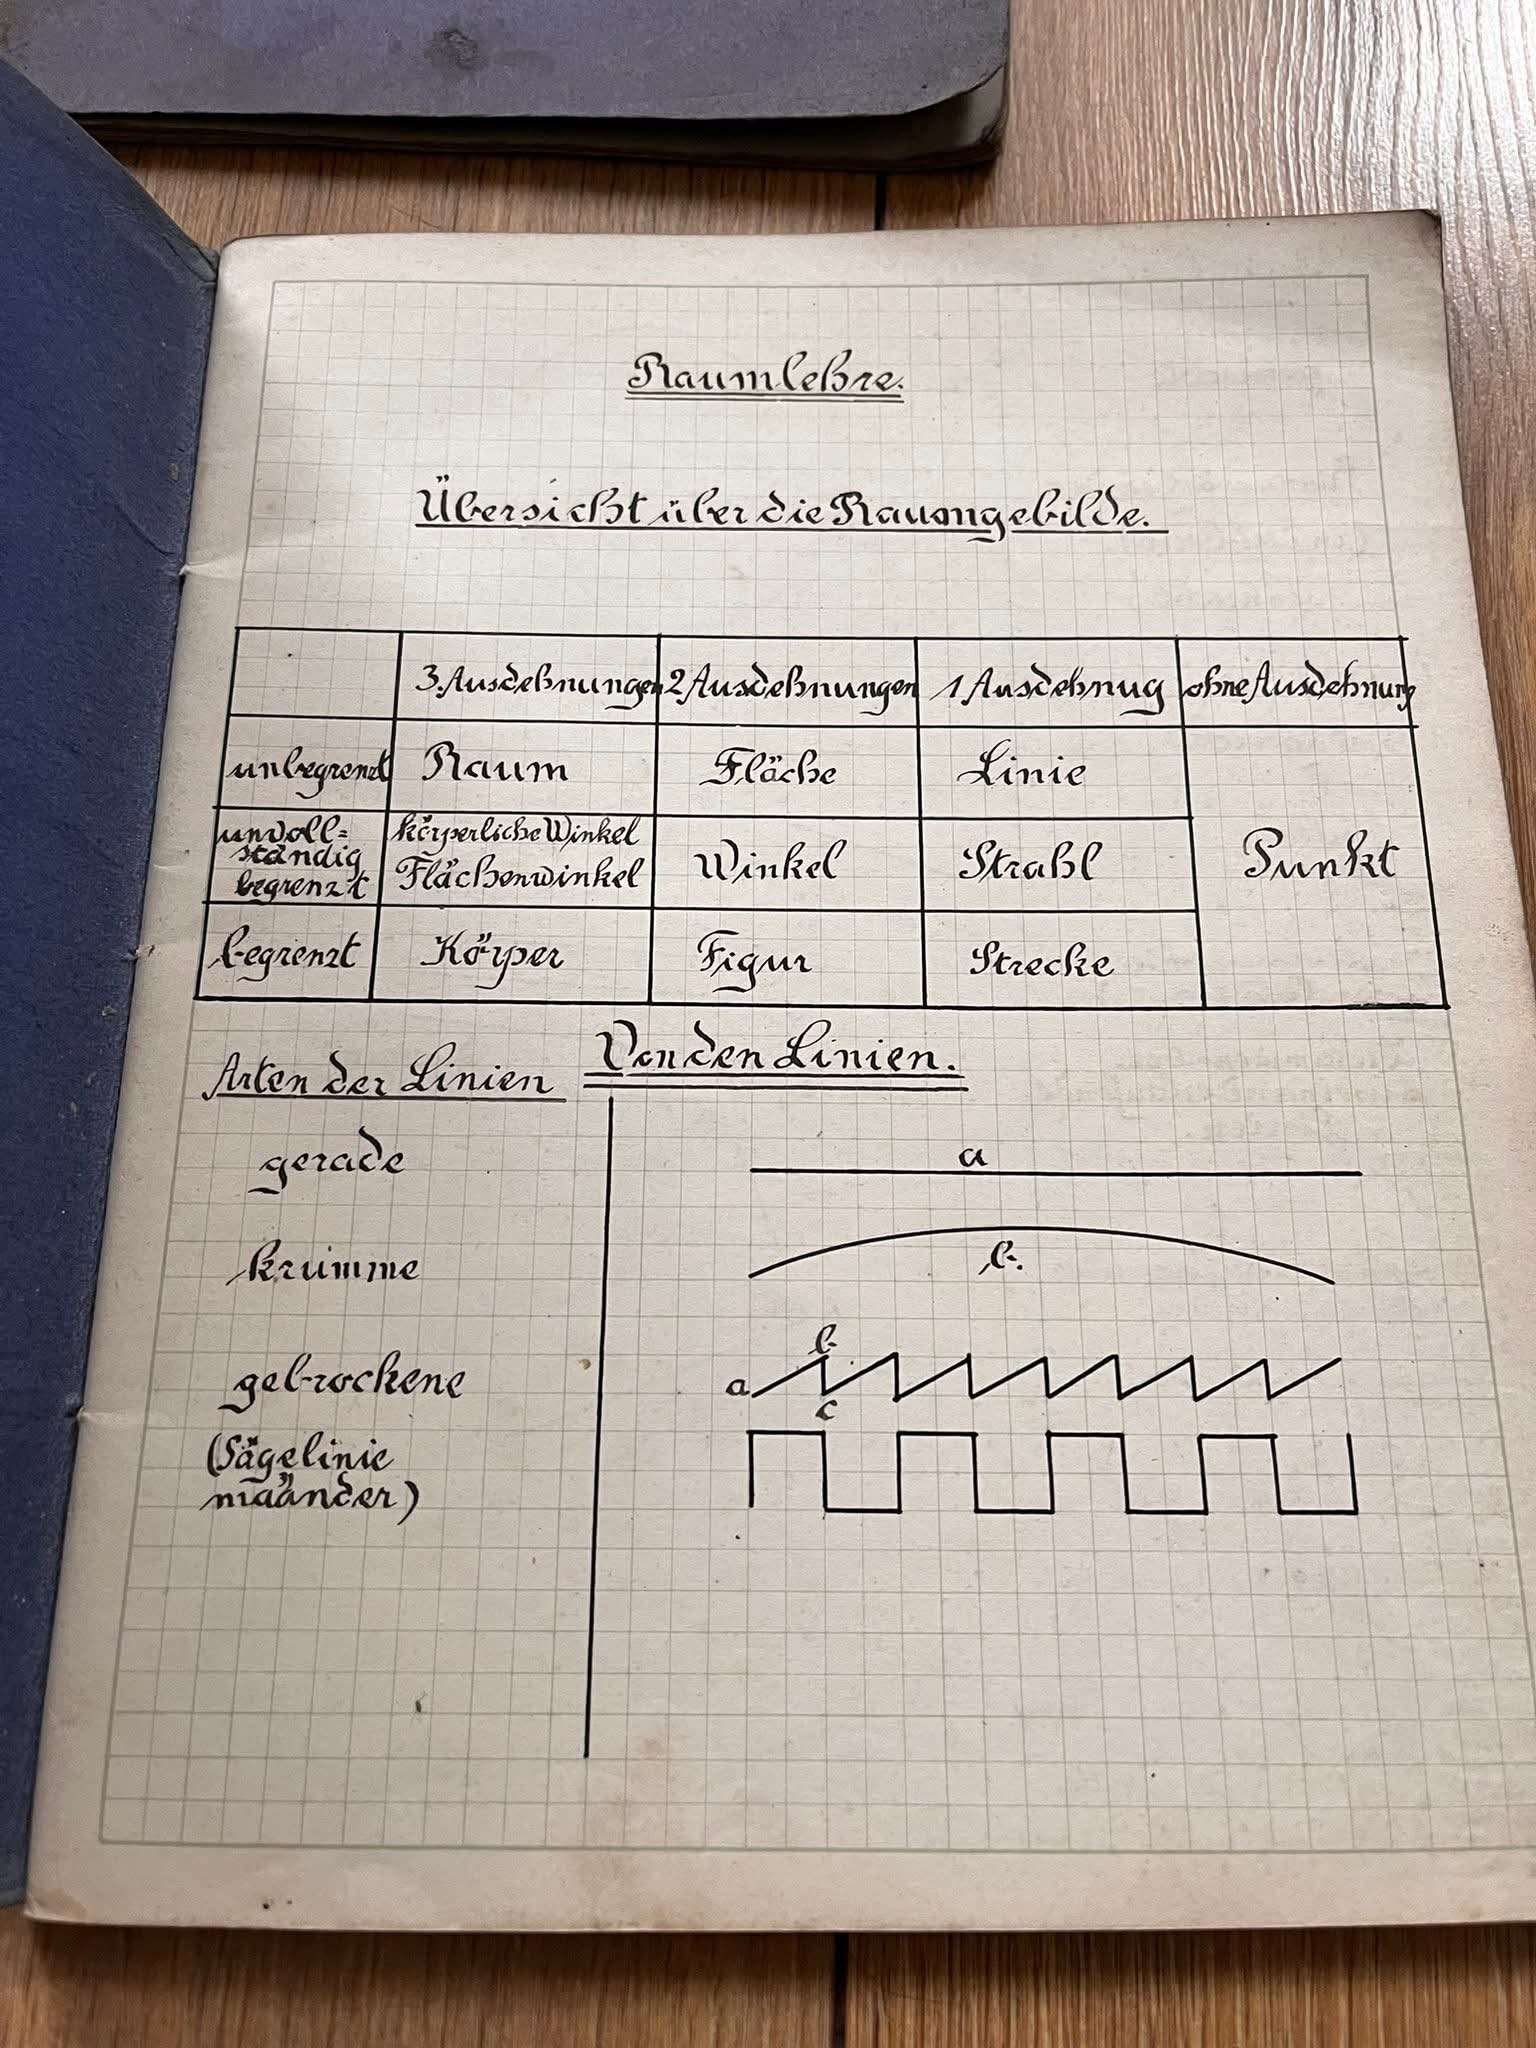 Raumlehre.
Übersicht über die Raumgebilde.
3. Ausdehnungen 2 Ausdehnungen 1 Ausdehnug ohne Ausdehnung
unbegrenzt Raum Fläche Linie
unvoll=
ständig
begrenzt
körperliche Winkel
Flächenwinkel
Winkel Strahl Punkt
begrenzt Körper Figur Strecke
Von den Linien.
Arten der Linien
gerade a
krumme b.
gebrochene a b c
(Sägelinie
mäander)